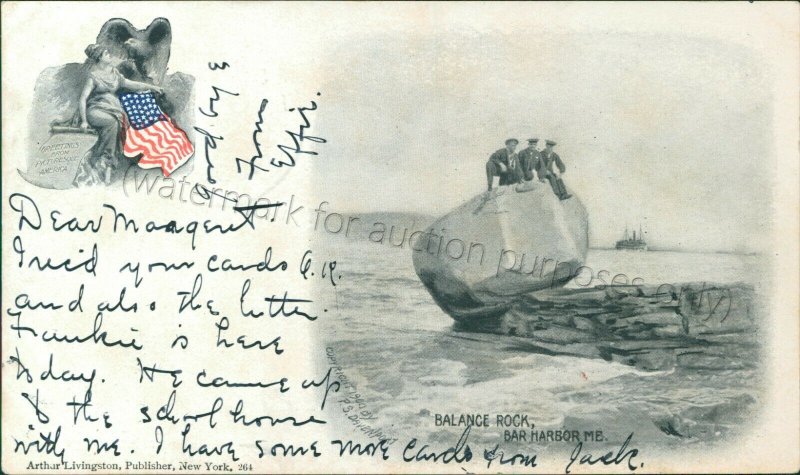 GREETINGS
FROM
PICTURESQUE
AMERICA
Good bye
From
Effie.
Dear Maageret.
I rec'd your cards O.K.
and also the letter.
Frankie is here
today. He came up
to the school house
with me. I have some more cards from Jack.
(Watermark for auction purposes only)
BALANCE ROCK,
BAR HARBOR ME.
Arthur Livingston, Publisher, New York. 264